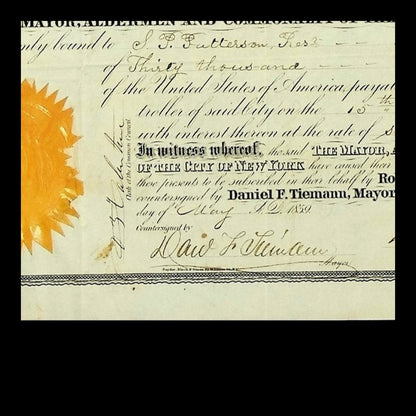 MAYOR, ALDERMEN AND COMMONALTY OF THE
mly bound to J. P. Patterson,
of Thirty thousand
of the United States of America, paya
troller of said City on the 15th
with interest thereon at the rate of
In witness whereof, the said THE MAYOR, A
OF THE CITY OF NEW YORK have caused
these presents to be subscribed in their behalf by Ro
countersigned by Daniel F. Tiemann, Mayor
day of May 1859
Countersigned by
Daniel F. Tiemann
Mayor
Clerk of the Common Council